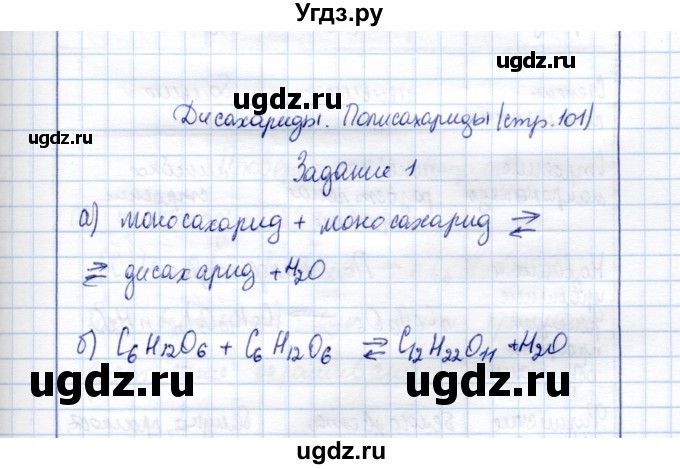 Угдз.ру
ugdz.ru
ugdz.ru
Дисахариды. Полисахариды (стр. 101)
ugdz.ru
Задание 1
а) моносахарид + моносахарид ⇄
ugdz.ru
⇄ дисахарид + H2O
ugdz.ru
ugdz.ru
б) C6H12O6 + C6H12O6 ⇄ C12H22O11 + H2O
ugdz.ru
ugdz.ru
ugdz.ru